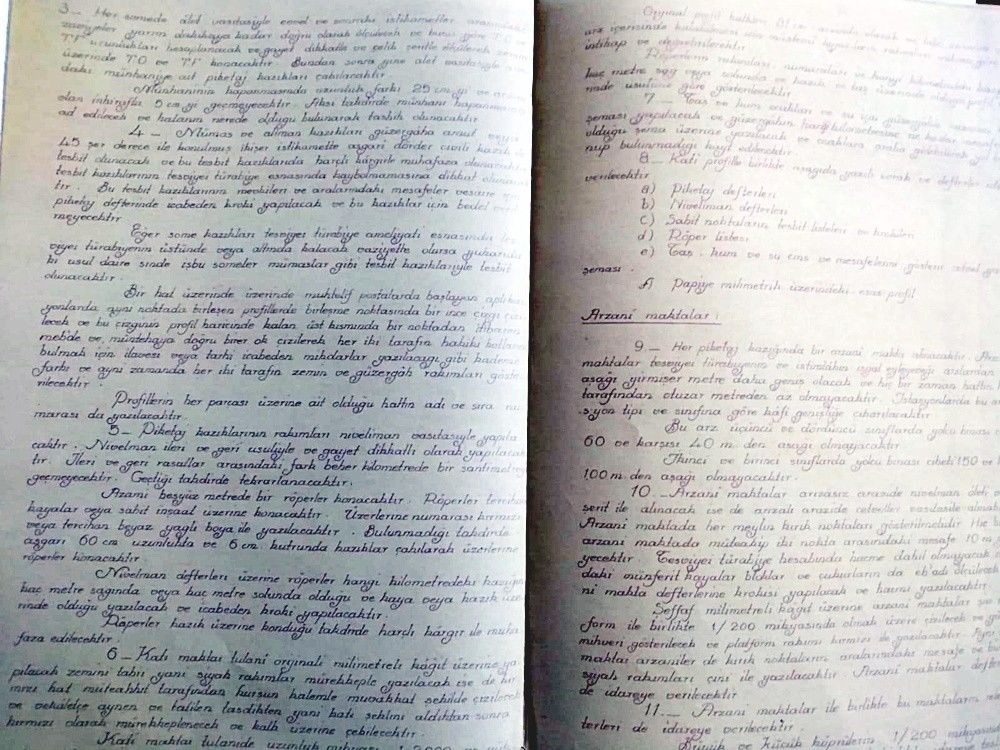 3 _ Her somede âlet vasıtasiyle evvel ve sonraki istikametler arasındaki
zaviyeler yarım dakikaya kadar doğru olarak ölçülecek ve buna göre T.O ve
T.F uzunlukları hesaplanacak ve gayet dikkatle ve çelik şeritle ölçülerek zemin
üzerinde T.O ve T.F konacaktır. Bundan sonra yine âlet vasıtasiyle
daki münhaniye ait piketaj kazıkları çakılacaktır.
Münhaninin kapanmasında uzunluk farkı 25 cm.yi ve
olan inhirafta 5 cm yi geçmeyecektir. Aksi takdirde münhani kapanma
ad edilecek ve hatanın nerede olduğu bulunarak tashih olunacaktır.
4 _ Mümas ve aliman kazıkları güzergâha amut veya
45 şer derece ile konulmuş ikişer istikamette asgari dörder civili kazık
tesbit olunacak ve bu tesbit kazıklarıda harçlı kârgirle muhafaza olunacak
tesbit kazıklarının tesviyei türabiye esnasında kaybolmamasına dikkat olunacak
tır. Bu tesbit kazıklarının mevkileri ve aralarındaki mesafeler vesaire için
piketaj defterinde icabeden kroki yapılacak ve bu kazıklar için bedel veril
meyecektir
Eğer some kazıkları tesviyei türabiye ameliyatı esnasında tes
viyei türabiyenin üstünde veya altında kalacak vaziyette olursa yukarıda
ki usul daire sinde işbu someler mümaslar gibi tesbit kazıklariyle tesbit
olunacaktır.
Bir hat üzerinde üzerinde muhtelif postalarda başlayan
yonlarda aynı noktada birleşen profillerde birleşme noktasında bir ince çizgi çizi
lecek ve bu çizginin profil haricinde kalan üst kısmında bir noktadan itibaren
mebde ve müntehaya doğru birer ok çizilerek her iki tarafın hakiki kotlarını
bulmak için ilâvesi veya tarhı icabeden mikdarlar yazılacağı gibi kademe
farkı ve aynı zamanda her iki tarafın zemin ve güzergâh rakımları göste
rilecektir
Profillerin her parçası üzerine ait olduğu hattın adı ve sıra nu
marası da yazılacaktır.
5 _ Piketaj kazıklarının rakımları niveliman vasıtasiyle yapıla
caktır. Nivelman ileri ve geri usuliyle ve gayet dikkatli olarak yapılacak
tır. İleri ve geri rasatlar arasındaki fark beher kilometrede bir santimetre
geçmeyecektir. Geçtiği takdirde tekrarlanacaktır.
Azami beşyüz metrede bir röperler konacaktır. Röperler tercihan
kayalar veya sabit inşaat üzerine konacaktır. Üzerlerine numarası kırmızı
veya tercihan beyaz yağlı boya ile yazılacaktır. Bulunmadığı takdirde
asgari 60 cm. uzunlukta ve 6 cm. kutrunda kazıklar çakılarak üzerlerine
röperler konacaktır
Nivelman defterleri üzerine röperler hangi kilometredeki kazığın
kaç metre sağında veya kaç metre solunda olduğu ve kaya veya kazık üze
rinde olduğu yazılacak ve icabeden kroki yapılacaktır.
Röperler kazık üzerine konduğu takdirde harçlı kârgir ile muha
faza edilecektir.
6 _ Katî maktaı tulanî orijinali milimetreli kâğıt üzerine ya
pılacak zemini tabiî yani siyah rakımlar mürekkeple yazılacak ise de kır
mızı hat müteahhit tarafından kurşun kalemle muvakkat şekilde çizilecek
ve vekâletçe aynen ve tadilen tasdikten yani katî şeklini aldıktan sonra
kırmızı olarak mürekkeplenecek ve kalk üzerine çekilecektir.
Katî maktaı tulanide uzunluk mikyası
Orijinal profil
arz içerisinde
intihap ve depertilecektir
Röperlerin rakımları, numaraları ve hangi kilometredeki
kaç metre sağ veya solunda ve kazık ve taş üzerinde olduğu profil üze
rinde usulüne göre gösterilecektir
7 _ Taş ve kum ocakları ve su için güzergâh
şeması yapılacak ve güzergâhın hangi kilometresine ne kadar mesafede
olduğu şema üzerine yazılacak ve ocaklara araba gidebilecek
nup bulunmadığı kayt edilecektir.
8 _ Katî profille birlikte aşağıda yazılı evrak ve defterler
verilecektir
a) Piketaj defterleri
b) Niveliman defterleri
c) Sabit noktaların tesbit listeleri ve krokileri
d) Röper listesi
e) Taş, kum ve su cins ve mesafelerini gösterir
şeması.
f) Papiye milimetrik üzerindeki esas profil
Arzanî maktalar:
9 _ Her piketaj kazığında bir arzanî makta alınacaktır.
maktalar tesviyei türabiyenin ve istimlâkin işgal eyleyeceği arslardan
aşağı yirmişer metre daha geniş olacak ve hiç bir zaman hattın
tarafından otuzar metreden az olmayacaktır. İstasyonlarda bu
s.yon tipi ve sınıfına göre kâfi genişliğe çıkarılacaktır
Bu arz üçüncü ve dördüncü sınıflarda yolcu binası
60 ve karşısı 40 m. den aşağı olmayacaktır
İkinci ve birinci sınıflarda yolcu binası ciheti 150 ve
100 m. den aşağı olmayacaktır.
10 _ Arzanî maktalar arızasız arazide nivelman âleti
şerit ile alınacak ise de arızalı arazide cetveller vasıtasile
Arzanî maktada her meylin kırık noktaları gösterilmelidir
arzanî maktada müteakip iki nokta arasındaki mesafe 10 m
yecektir. Tesviyei türabiye hesabında hacme dahil olmayacak
daki münferit kayalar bloklar ve çukurların da eb'adı ölçülecek
ni makta defterlerine krokisi yapılacak ve hacmi yazılacaktır
Şeffaf milimetreli kâğıt üzerine arzanî maktalar
form ile birlikte 1/200 mikyasında olmak üzere çizilecek ve
mihveri gösterilecek ve platform rakımı kırmızı ile yazılacaktır.
maktaı arzaniler de kırık noktaların aralarındaki mesafe ve
siyah rakımları çini ile yazılacaktır. Arzanî maktalar
de idareye verilecektir
11 _ Arzanî maktalar ile birlikte bu maktaların
terleri de idareye verilecektir.
Büyük ve Küçük köprülerin 1/200 mikyasında